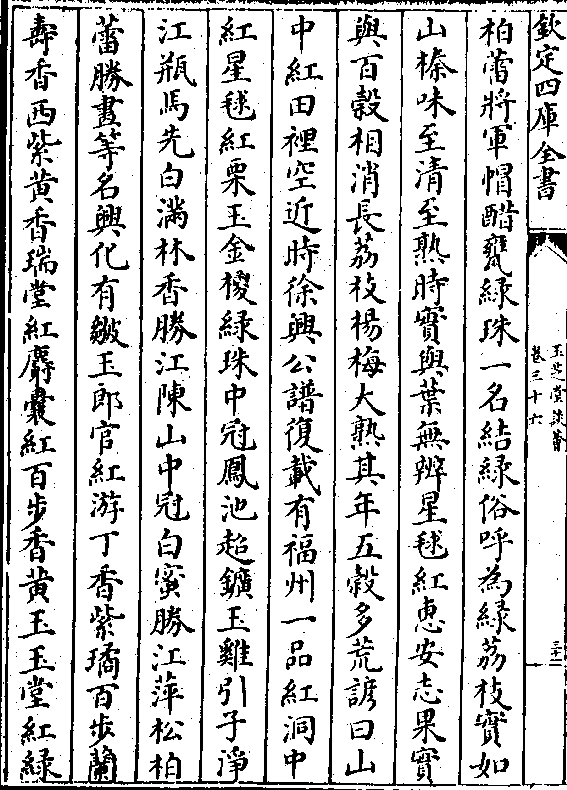 欽定四庫全書
玉芝堂談薈
卷三十六
三十二
柏蕾將軍帽醋甕緑珠一名結緑俗呼為緑荔枝實如
山榛味至清至熟時實與葉無辨星毬紅惠安志果實
與百穀相消長荔枝楊梅大熟其年五穀多荒諺曰山
中紅田裡空近時徐興公譜復載有福州一品紅洞中
紅星毬紅栗玉金椶緑珠中冠鳳池超鑛玉雞引子淨
江瓶馬先白滿林香勝江陳山中冠白蜜勝江萍松柏
蕾勝畫等名興化有皺玉郎官紅游丁香紫璚百步蘭
壽香西紫黄香瑞堂紅麝囊紅百步香黄玉玉堂紅緑